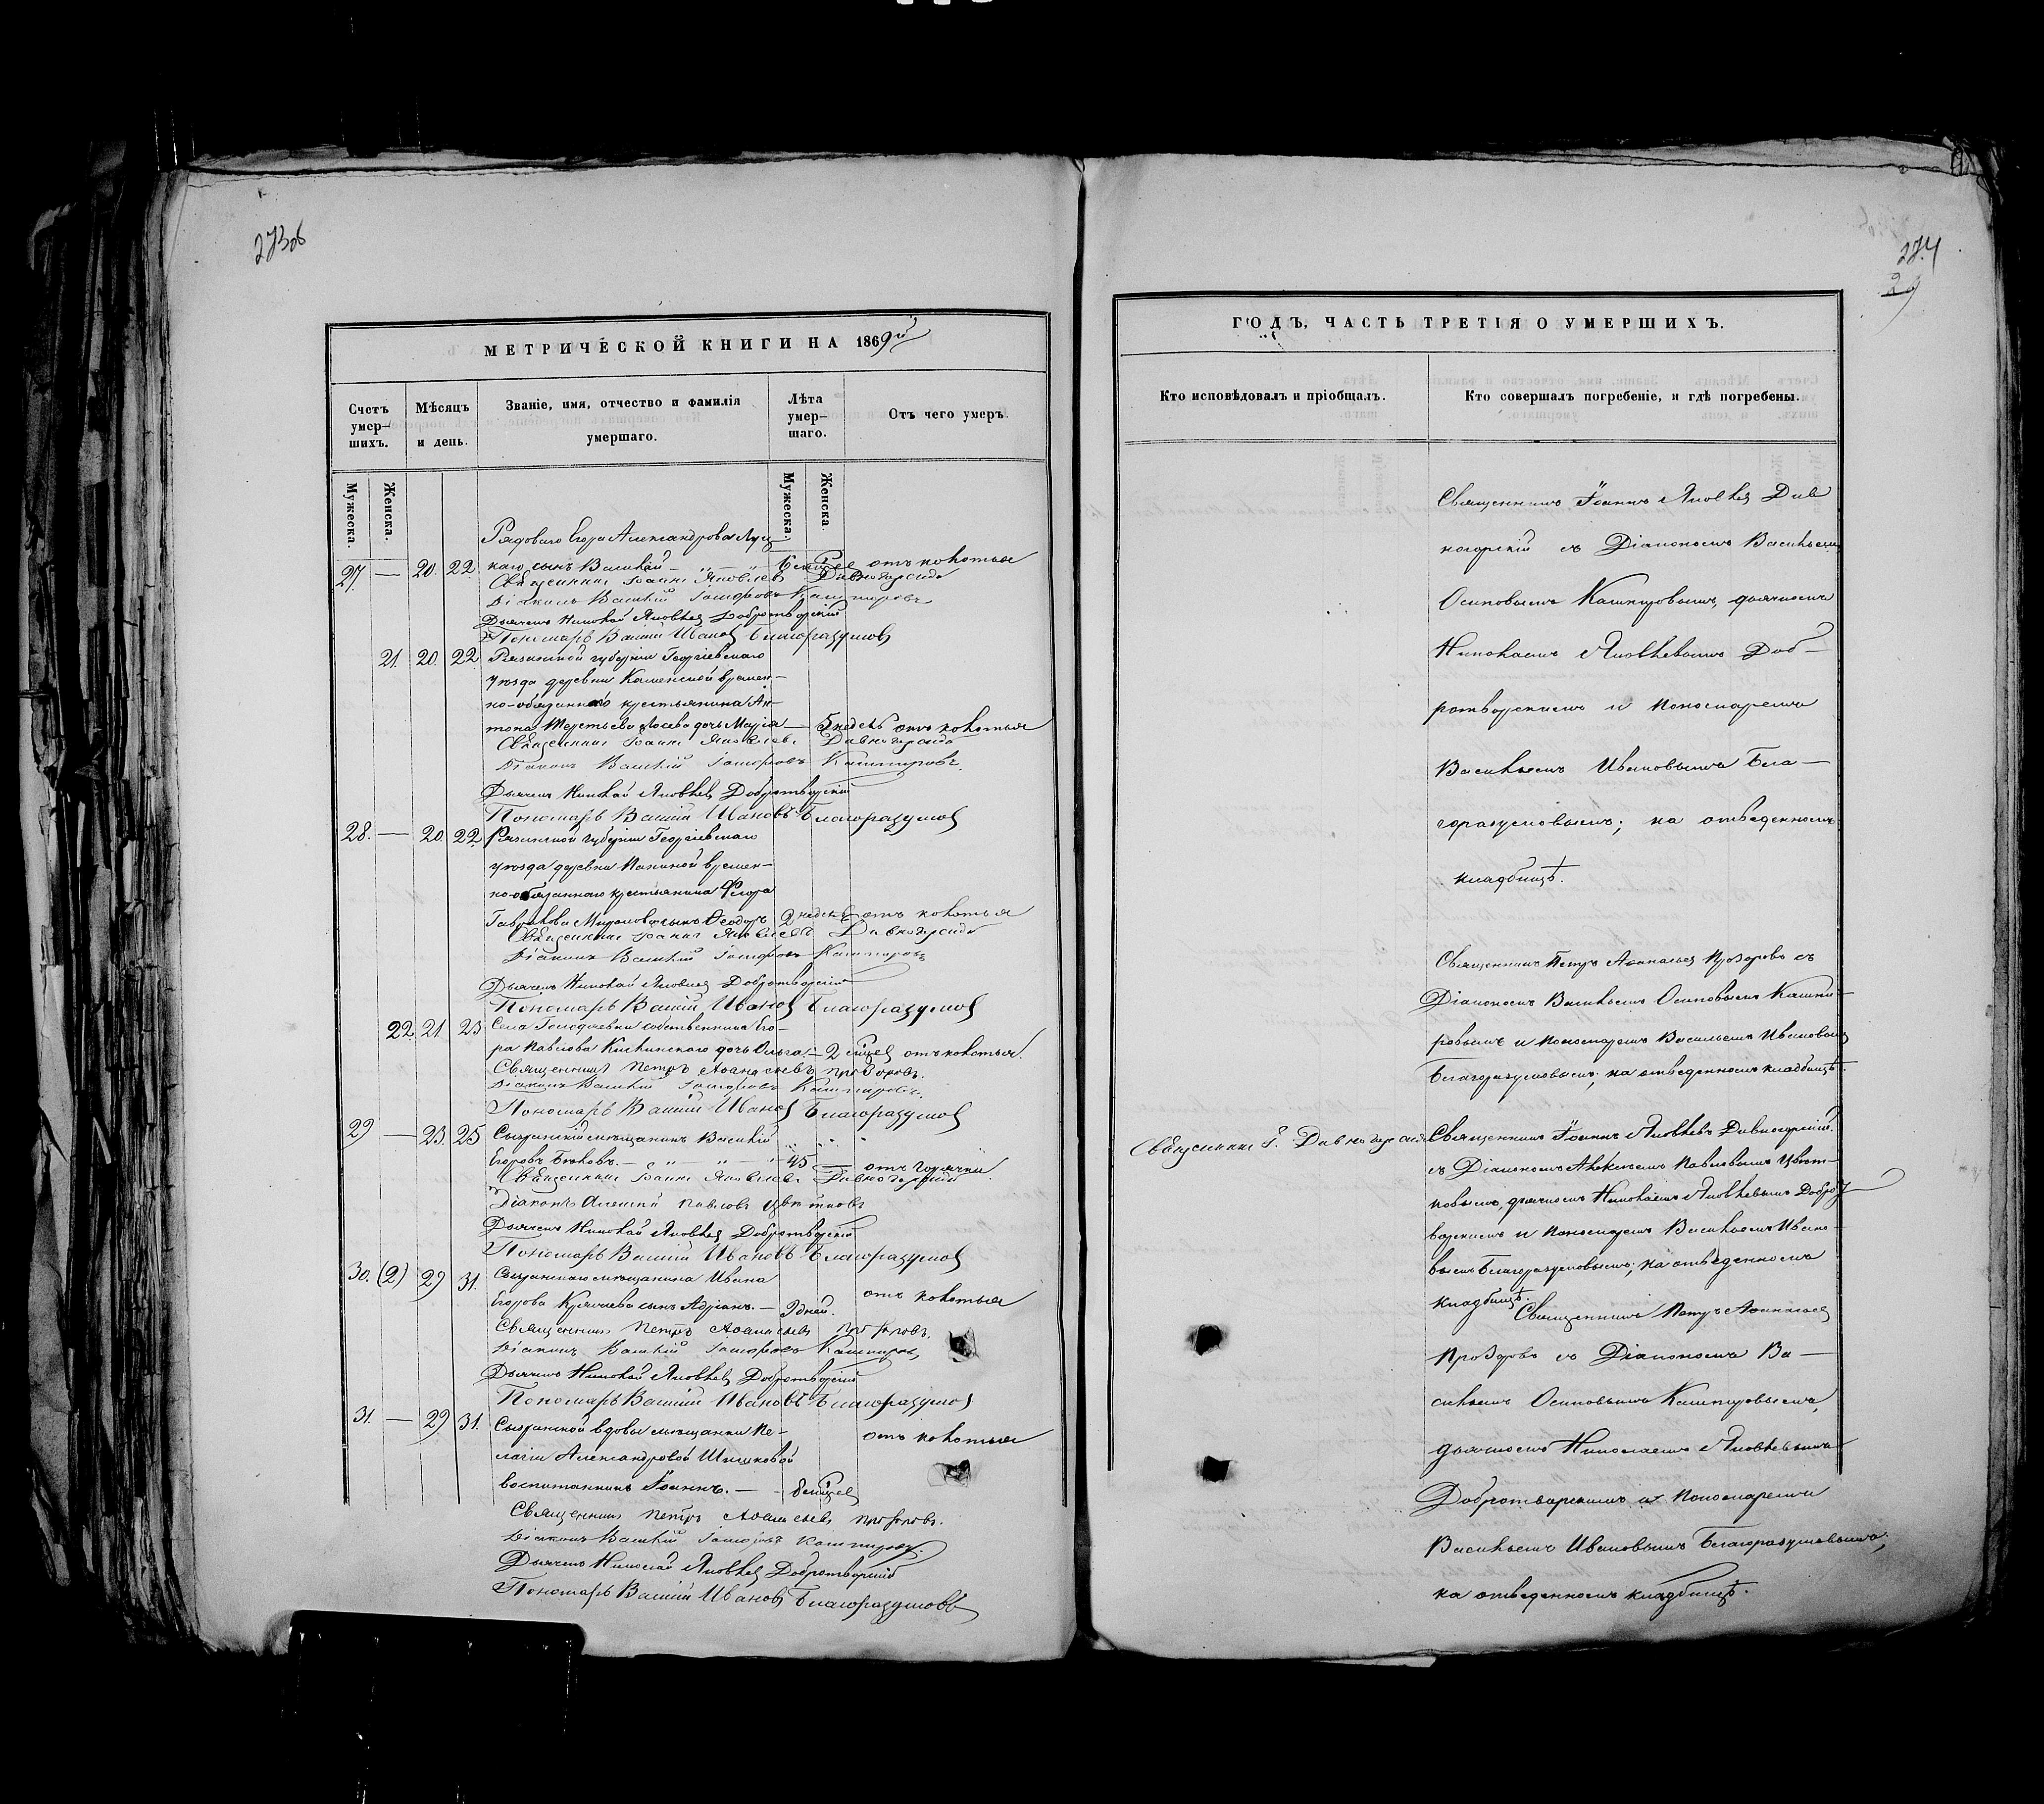 273об
МЕТРИЧЕСКОЙ КНИГИ НА 1869й
Счетъ умер-шихъ.
Мѣсяцъ и день.
Званіе, имя, отчество и фамилія умершаго.
Лѣта умер-шаго.
Отъ чего умеръ.
Мужеска.
Женска.
Мужеска.
Женска.
Рядоваго Егора Александрова
27. — 20. 22 сынъ Василій — отъ колотья
Священникъ Іоаннъ Яковлевъ Дивногорскій
Діаконъ Василій Іосифовъ Кашпировъ
Дьячекъ Николай Яковлев Добротворскій
Пономарь Василій Иванов Благоразумов
21. 20. 22 Рязанской губерніи Георгіевскаго
уѣзда деревни Каменской времен-
но-обязаннаго крестьянина Ан-
тона Терентьева Лосева дочь Марія — 5 недѣль отъ колотья
Священникъ Іоаннъ Яковлевъ Дивногорскій
Діаконъ Василій Іосифовъ Кашпировъ.
Дьячекъ Николай Яковлев Добротворскій
Пономарь Василій Ивановъ Благоразумов
28. — 20. 22 Рязанской губерніи Георгіевскаго
уѣзда деревни времен-
но-обязаннаго крестьянина
Гаврилова сынъ Ѳеодоръ 2 недѣль отъ колотья
Священникъ Іоаннъ Яковлевъ Дивногорскій
Діаконъ Василій Іосифовъ Кашпировъ
Дьячекъ Николай Яковлев Добротворскій
Пономарь Василій Иванов Благоразумов
22 21 23 Села собственника Его-
ра Павлова дочь Ольга — 2 отъ колотья.
Священникъ Петръ Аѳанасьевъ Прозоровъ.
Діаконъ Василій Іосифовъ Кашпировъ.
Пономарь Василій Иванов Благоразумов
29 — 23. 25 Сызранскій мѣщанинъ Василій
Егоровъ — 45 — отъ горячки
Священникъ Іоаннъ Яковлевъ Дивногорскій
Діаконъ Алексій Павловъ Цвѣтковъ
Дьячекъ Николай Яковлев Добротворскій
Пономарь Василій Ивановъ Благоразумов
30. (2) 29 31. Сызранскаго мѣщанина Ивана
Егорова сынъ Адріанъ. — 9 дней. отъ колотья
Священникъ Петръ Аѳанасьевъ Прозоровъ.
Діаконъ Василій Іосифовъ Кашпировъ
Дьячекъ Николай Яковлев Добротворскій
Пономарь Василій Ивановъ Благоразумов
31. — 29 31. Сызранской вдовы мѣщанки Пе- отъ колотья
лагіи Александровой Шишковой
воспитанникъ Іоаннъ. —
Священникъ Петръ Аѳанасьевъ Прозоровъ.
Діаконъ Василій Іосифовъ Кашпировъ.
Дьячекъ Николай Яковлев Добротворскій
Пономарь Василій Иванов Благоразумовъ
274
29
ГОДЪ, ЧАСТЬ ТРЕТІЯ О УМЕРШИХЪ.
Кто исповѣдовалъ и пріобщалъ.
Кто совершалъ погребеніе, и гдѣ погребены.
Священникъ Іоаннъ Яковлев Див
ногорскій съ Діакономъ Васильемъ
Осиповымъ Кашпировымъ, дьячкомъ
Николаемъ Яковлевымъ Доб-
ротворскимъ и пономаремъ
Васильемъ Ивановымъ Бла-
горазумовымъ; на отведенномъ
кладбищѣ.
Священникъ Петръ Аѳанасьев Прозоровъ съ
Діакономъ Васильемъ Осиповымъ Кашпи-
ровымъ и пономаремъ Васильемъ Ивановымъ
Благоразумовымъ; на отведенномъ кладбищѣ.
Священникъ І. Дивногорскій
Священникъ Іоаннъ Яковлевъ Дивногорскій
съ Діакономъ Алексѣемъ Павловымъ Цвѣт-
ковымъ, дьячкомъ Николаемъ Яковлевымъ Добро-
ворскимъ и пономаремъ Васильемъ Ивано-
вымъ Благоразумовымъ; на отведенномъ
кладбищѣ.
Священникъ Петръ Аѳанасьев
Прозоровъ съ Діакономъ Ва-
сильемъ Осиповымъ Кашпировымъ,
дьячкомъ Николаемъ Яковлевымъ
Добротворскимъ и пономаремъ
Васильемъ Ивановымъ Благоразумовымъ;
на отведенномъ кладбищѣ.